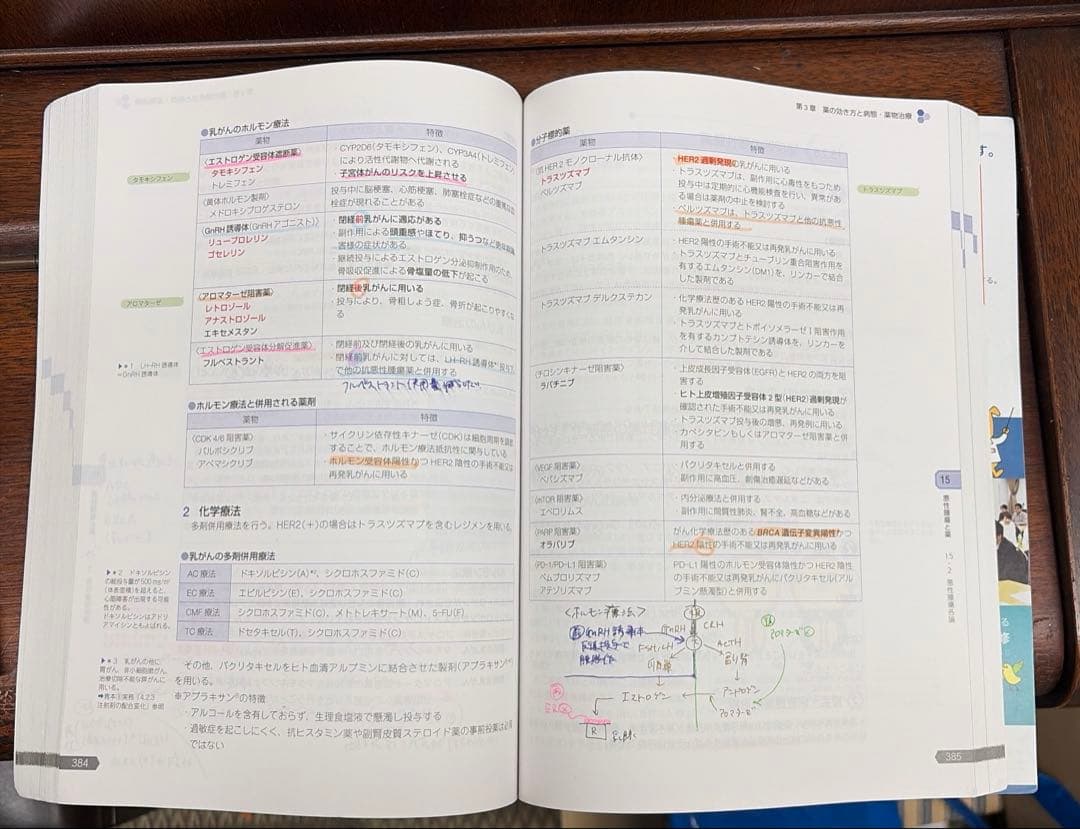 ●乳がんのホルモン療法
薬物
特徴
〈エストロゲン受容体遮断薬〉
タモキシフェン
トレミフェン
・CYP2D6(タモキシフェン)、CYP3A4(トレミフェン)
により活性代謝物へ代謝される
・子宮体がんのリスクを上昇させる
〈黄体ホルモン製剤〉
メドロキシプロゲステロン
投与中に脳梗塞、心筋梗塞、肺塞栓症などの重篤な血
栓症が現れることがある
〈GnRH誘導体(GnRHアゴニスト)〉
リュープロレリン
ゴセレリン
・閉経前乳がんに適応がある
・副作用による頭重感やほてり、抑うつなど更年期障
害様の症状がある
・継続投与によるエストロゲン分泌抑制作用のため、
骨吸収促進による骨塩量の低下が起こる
〈アロマターゼ阻害薬〉
レトロゾール
アナストロゾール
エキセメスタン
・閉経後乳がんに用いる
・投与により、骨粗しょう症、骨折が起こりやすくな
る
〈エストロゲン受容体分解促進薬〉
フルベストラント
・閉経前及び閉経後の乳がんに用いる
・閉経前乳がんに対しては、LH-RH誘導体*¹投与下
で他の抗悪性腫瘍薬と併用する
タモキシフェン
アロマターゼ
▶*1 LH-RH誘導体
=GnRH誘導体
●ホルモン療法と併用される薬剤
薬物
特徴
〈CDK 4/6 阻害薬〉
パルボシクリブ
アベマシクリブ
・サイクリン依存性キナーゼ(CDK)は細胞周期を調節
することで、ホルモン療法抵抗性に関与している
・ホルモン受容体陽性かつHER2陰性の手術不能又は
再発乳がんに用いる
2 化学療法
多剤併用療法を行う。HER2(+)の場合はトラスツズマブを含むレジメンを用いる。
●乳がんの多剤併用療法
AC療法 ドキソルビシン(A)*²、シクロホスファミド(C)
EC療法 エピルビシン(E)、シクロホスファミド(C)
CMF療法 シクロホスファミド(C)、メトトレキサート(M)、5-FU(F)
TC療法 ドセタキセル(T)、シクロホスファミド(C)
▶*2 ドキソルビシン
の総投与量が500 mg/m²
(体表面積)を超えると、
心筋障害が出現する可能
性がある。
ドキソルビシンはアドリ
アマイシンともよばれる。
▶*3 乳がんの他に
胃がん、非小細胞肺がん、
治療切除不能な膵がんに
用いる。
その他、パクリタキセルをヒト血清アルブミンに結合させた製剤(アブラキサン*³)
を用いる。
※アブラキサンの特徴
・アルコールを含有しておらず、生理食塩液で懸濁し投与する
・過敏症を起こしにくく、抗ヒスタミン薬や副腎皮質ステロイド薬の事前投薬は必須
ではない
384
第3章 薬の効き方と病態・薬物治療
●分子標的薬
薬物
特徴
〈抗HER2モノクローナル抗体〉
トラスツズマブ
ペルツズマブ
・HER2過剰発現の乳がんに用いる
・トラスツズマブは、副作用に心毒性をもつため
投与中は定期的に心機能検査を行い、異常があ
る場合は薬剤の中止を検討する
・ペルツズマブは、トラスツズマブと他の抗悪性
腫瘍薬と併用する
トラスツズマブ エムタンシン
・HER2陽性の手術不能又は再発乳がんに用いる
・トラスツズマブとチューブリン重合阻害作用を
有するエムタンシン(DM1)を、リンカーで結合
した製剤である
トラスツズマブ デルクステカン
・化学療法歴のあるHER2陽性の手術不能又は再
発乳がんに用いる
・トラスツズマブとトポイソメラーゼⅠ阻害作用
を有するカンプトテシン誘導体を、リンカーを
介して結合した製剤である
〈チロシンキナーゼ阻害薬〉
ラパチニブ
・上皮成長因子受容体(EGFR)とHER2の両方を阻
害する
・ヒト上皮増殖因子受容体2型(HER2)過剰発現が
確認された手術不能又は再発乳がんに用いる
・トラスツズマブ投与後の増悪、再発例に用いる
・カペシタビンもしくはアロマターゼ阻害薬と併
用する
〈VEGF阻害薬〉
ベバシズマブ
・パクリタキセルと併用する
・副作用に高血圧、創傷治癒遅延などがある
〈mTOR阻害薬〉
エベロリムス
・内分泌療法と併用する
・副作用に間質性肺炎、腎不全、高血糖などがある
〈PARP阻害薬〉
オラパリブ
がん化学療法歴のあるBRCA遺伝子変異陽性かつ
HER2陰性の手術不能又は再発乳がんに用いる
〈PD-1/PD-L1阻害薬〉
ペムブロリズマブ
アテゾリズマブ
PD-L1陽性のホルモン受容体陰性かつHER2陰性
の手術不能又は再発乳がんにパクリタキセル(アル
ブミン懸濁型)と併用する
トラスツズマブ
〈ホルモン療法〉
GnRH誘導体
GnRH
CRH
FSH/LH
ACTH
卵巣
副腎
エストロゲン
アンドロゲン
アロマターゼ
R
15
悪性腫瘍と薬
15・2 悪性腫瘍各論
385